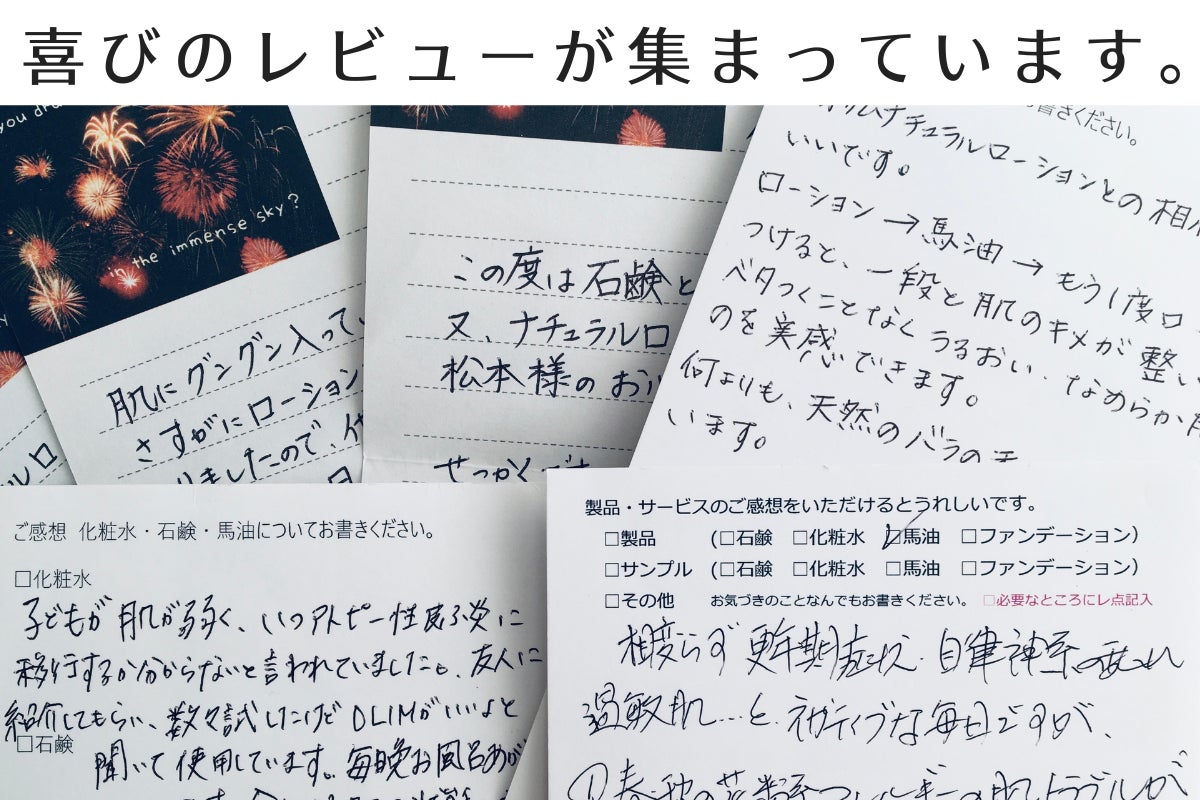 喜びのレビューが集まっています。
you
in the immense sky?
肌にグングン入って
さすがにローション
りましたので、
この度は石鹸と
又、ナチュラルロ
松本様の
せっかく
書きください。
ナチュラルローションとの相
いいです。
ローション→馬油→もう1度ロ
つけると、一段と肌のキメが整い
ベタつくことなくうるおい、なめらか
のを実感できます。
何よりも、天然のバラの
います。
ご感想 化粧水・石鹸・馬油についてお書きください。
□化粧水
子どもが肌が弱く、いつアトピー性皮ふ炎に
移行するか分からないと言われていましたが、友人に
紹介してもらい、数々試したけど OLIMがいいよと
□石鹸
聞いて使用しています。毎晩お風呂あが
製品・サービスのご感想をいただけるとうれしいです。
□製品 (□石鹸 □化粧水 □馬油 □ファンデーション)
□サンプル (□石鹸 □化粧水 □馬油 □ファンデーション)
□その他 お気づきのことなんでもお書きください。 □必要なところにレ点記入
相変らず更年期症状、自律神経の
過敏肌…と、ネガティブな毎日ですが、
①春・秋の花粉